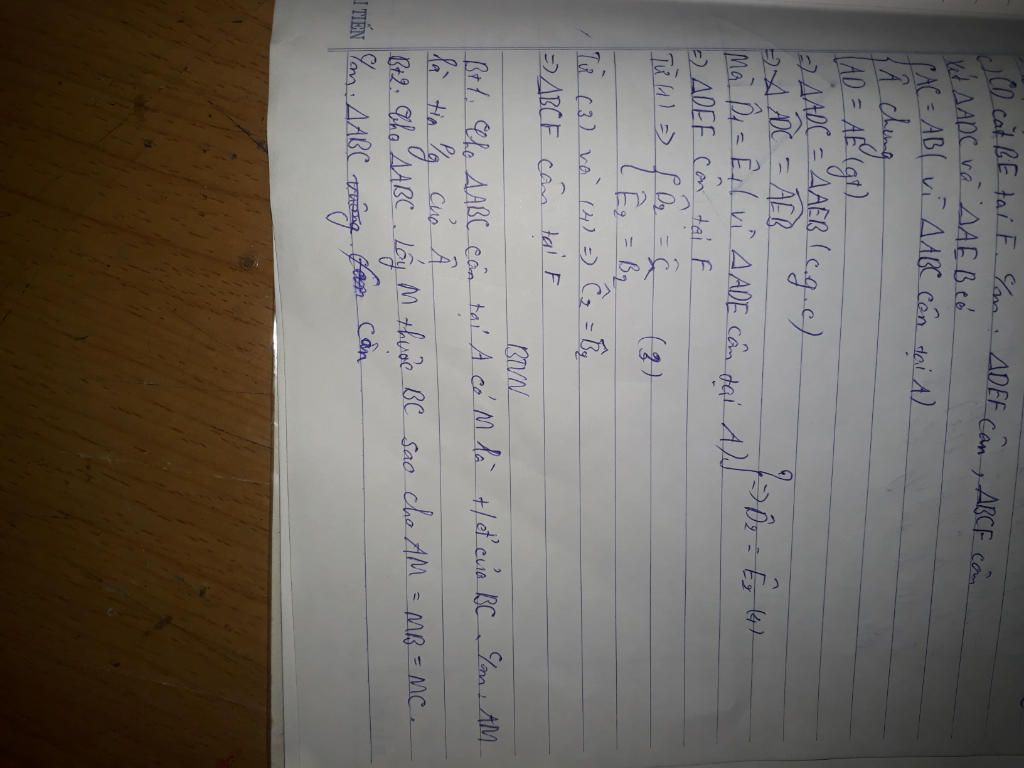 c) CD cắt BE tại F. C/m: ΔDEF cân, ΔBCF cân
Xét ΔADC và ΔAEB có
{ AC = AB (vì ΔABC cân tại A)
Â chung
AD = AE (gt)
=> ΔADC = ΔAEB (c.g.c)
=> ADC = AEB
Mà D̂1 = Ê1 (vì ΔADE cân tại A) } => D̂2 = Ê2 (4)
=> ΔDEF cân tại F
Từ (1) => { D̂2 = Ĉ2 (3)
Ê2 = B̂2
Từ (3) và (4) => Ĉ2 = B̂2
=> ΔBCF cân tại F
BTVN
Bt1. Cho ΔABC cân tại A có M là tđ của BC. C/m: AM
là tia p/g của Â
Bt2. Cho ΔABC. Lấy M thuộc BC sao cho AM = MB = MC.
C/m: ΔABC cân
TIẾN